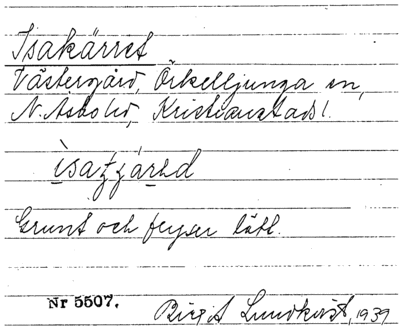 Isakärret
Västergård, Örkelljunga sn,
N. Åsbo hd, Kristianstads l.
Grunt och fryser lätt.
Nr 5507. Birgit Lundkvist, 1939